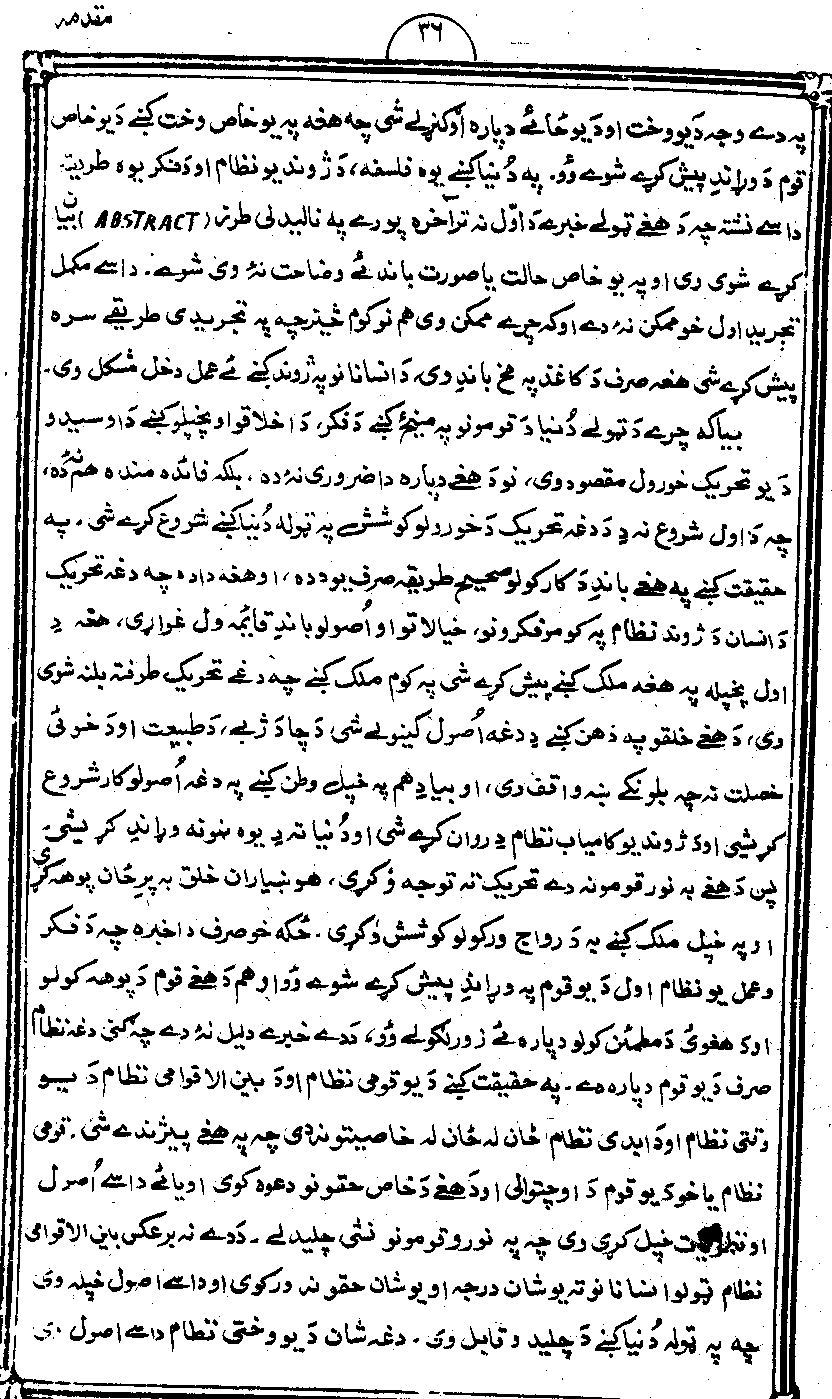 مقدمه
٣٦
په دے وجه دَ يو وخت او دَ يو ځائے دپاره اوګنړلے شى چه هغه په يو خاص وخت کښے دَ يو خاص
قوم دَ وړاندِ پيش کړے شوے وُو. په دُنيا کښے يوه فلسفه، دَ ژوند يو نظام او دَ فکر يوه طريقه
داسے نشته چه دَ هغے ټولے خبرے دَ اوّل نه تر آخره پورے په ناليدلى طرز (ABSTRACT) بيان
کړے شوى وى او په يو خاص حالت يا صورت باندے ئے وضاحت نۀ وى شوے. داسے مکمل
تجريد اول خو ممکن نۀ دے او که چرے ممکن وى هم نو کوم څيز چه په تجريدى طريقے سره
پيش کړے شى هغه صرف دَ کاغذ په مخ باندِ وى، دَ انسانانو په ژوند کښے ئے عمل دخل مشکل وى.
بيا که چرے دَ ټولے دُنيا دَ قومونو په مينځ کښے دَ فکر، دَ اخلاقو او بخپلو کښے دَ اوسيدو
دَ يو تحريک خورول مقصود وى، نو دَ هغے دپاره دا ضرورى نۀ ده. بلکه فائده منده هم نۀ ده،
چه دَ اول شروع نه دِ دَ دغه تحريک دَ خورولو کوششے په ټوله دُنيا کښے شروع کړے شى. په
حقيقت کښے په هغے باندِ دَ کار کولو صحيح طريقه صرف يوه ده، او هغه دا ده چه دغه تحريک
دَ انسان دَ ژوند نظام په کومو فکرونو، خيالاتو او اُصولو باندِ قائمه ول غواړى، هغه دِ
اول پخپله په هغه ملک کښے پيش کړے شى په کوم ملک کښے چه دغے تحريک طرف ته بلنه شوى
وى، دَ هغے خلقو په ذهن کښے دِ دغه اُصول کينولے شى دَ چا دَ ژبے، دَ طبيعت او دَ خوئى
خصلت نه چه بلونکے ښه واقف وى، او بيا دِ هم په خپل وطن کښے په دغه اُصولو کار شروع
کړيشى او دَ ژوند يو کامياب نظام دِ روان کړے شى او دُنيا ته دِ يوه نمونه وړاندِ کړيشى.
پس دَ هغے به نور قومونه دے تحريک ته توجه وُکړى، هوښياران خلق به پرِ ځان پوهه کړى
او په خپل ملک کښے به دَ رواج ورکولو کوشش وُکړى. ځکه خو صرف دا خبره چه دَ فکر
وعمل يو نظام اول دَ يو قوم په وړاندِ پيش کړے شوے وُو او هم دَ هغے قوم دَ پوهه کولو
او دَ هغوئ دَ مطمئن کولو دپاره ئے زور لګولے وُو، دَ دے خبرے دليل نۀ دے چه ګنى دغه نظام
صرف دَ يو قوم دپاره دے. په حقيقت کښے دَ يو قومى نظام او دَ بين الاقوامى نظام دَ يو
وقتى نظام او دَ ابدى نظام ځان له ځان له خاصيتونه دى چه په هغے پيژندے شى. قومى
نظام يا خو دَ يو قوم دَ اوچتوالى او دَ هغے دَ خاص حقونو دعوه کوى او يا ئے داسے اُصول
او نظريات خپل کړى وى چه په نورو قومونو نشى چليدلے. دَ دے نه برعکس بين الاقوامى
نظام ټولو انسانانو ته يو شان درجه او يو شان حقونه ورکوى او داسے اصول خپله وى
چه په ټوله دُنيا کښے دَ چليدو قابل وى. دغه شان دَ يو وختى نظام داسے اصول وى